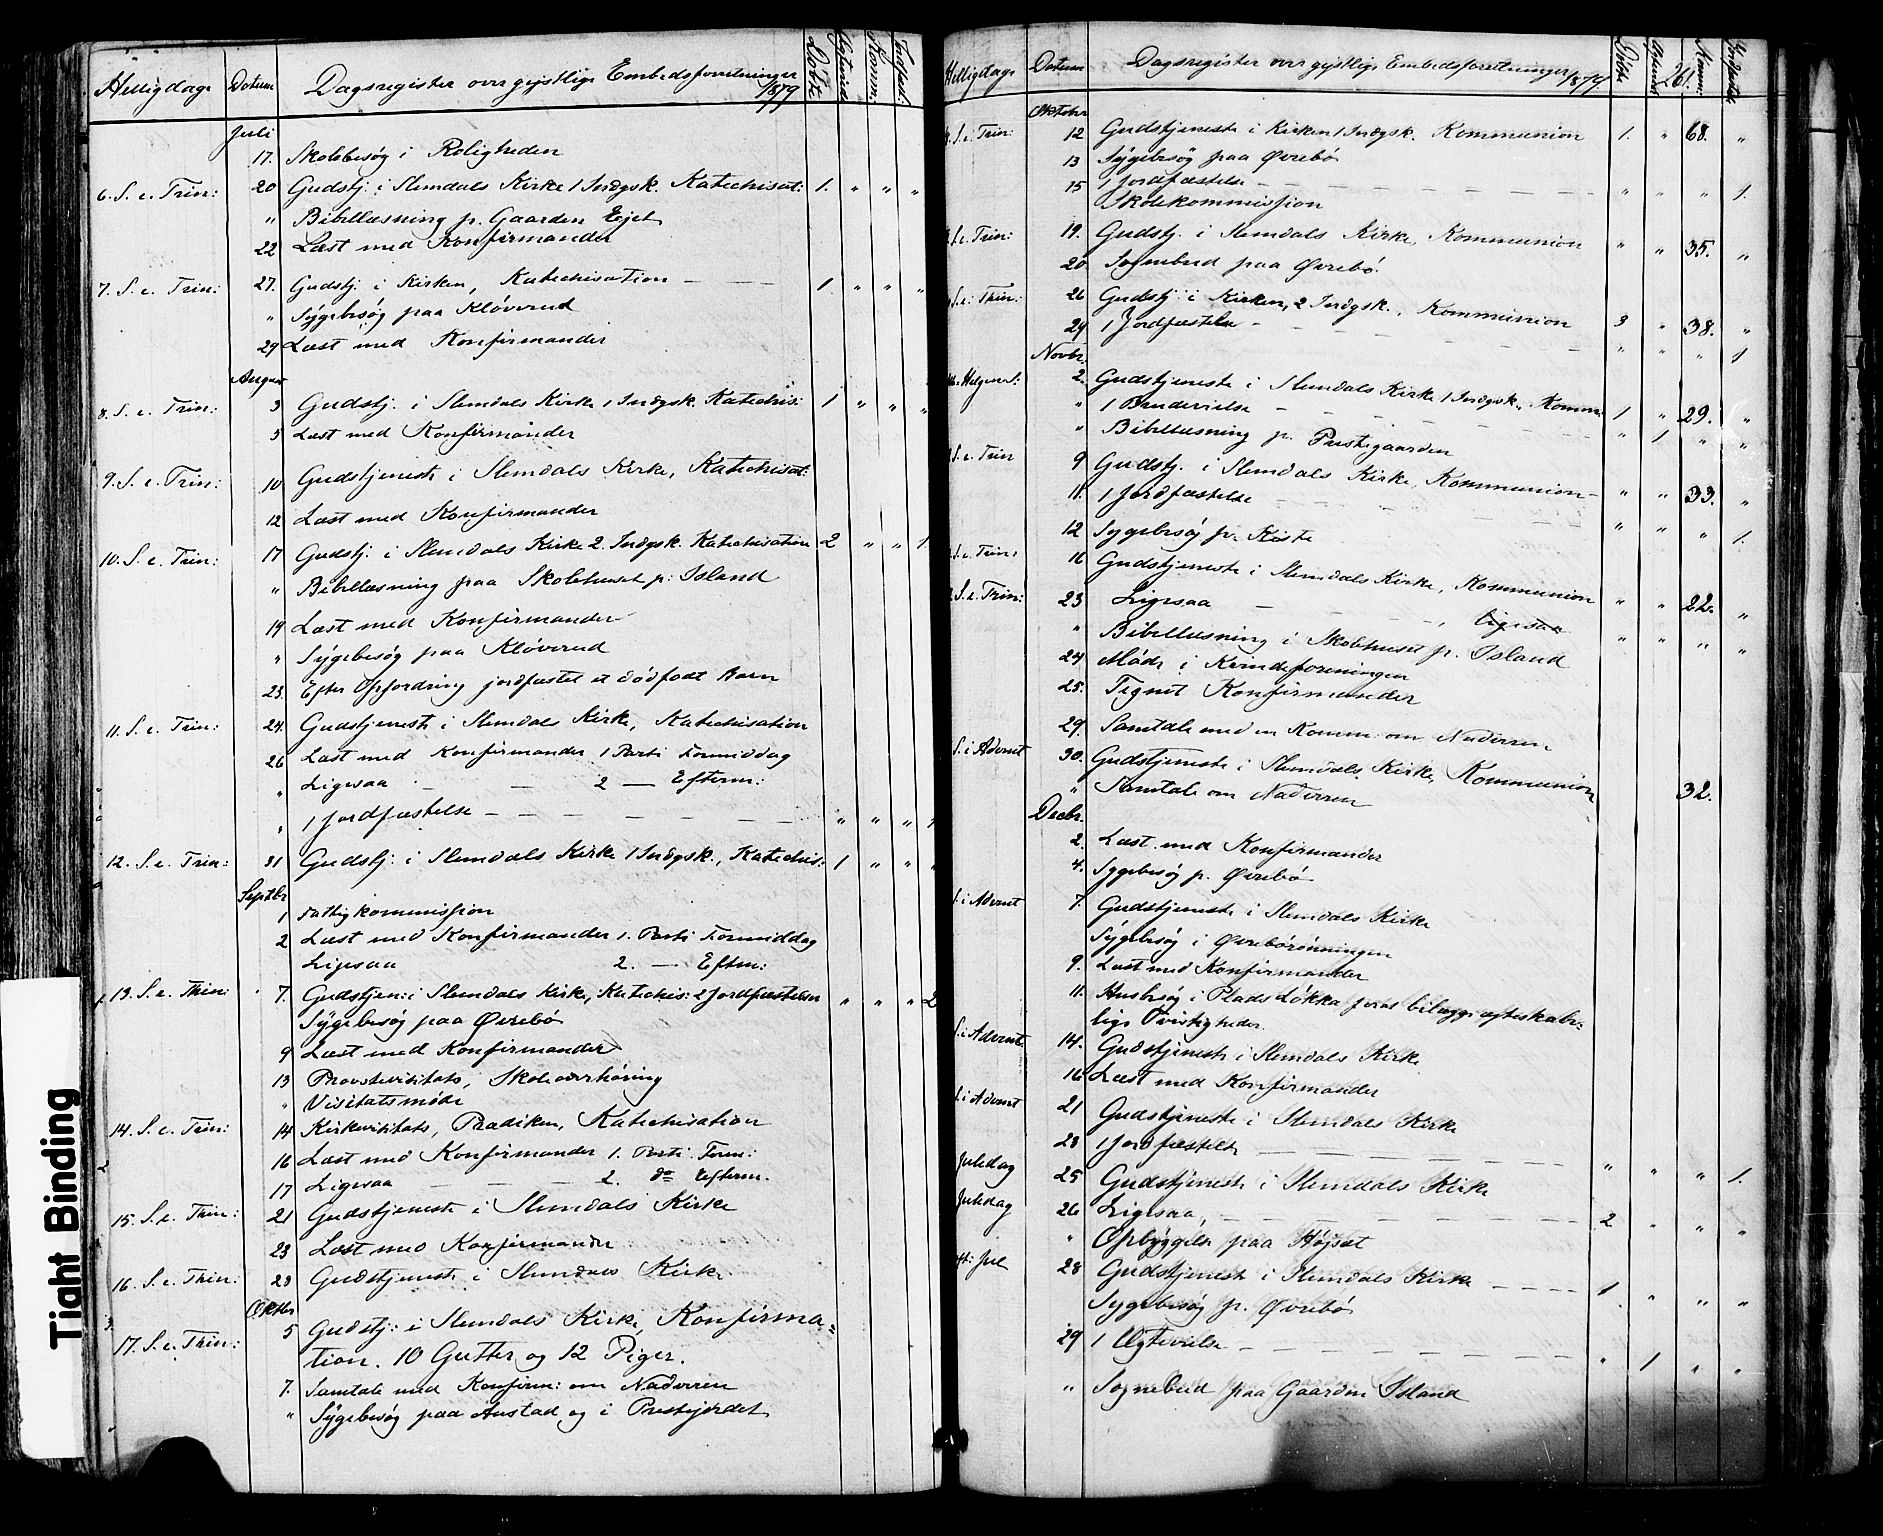 Helligdage Datum Dagsregister over gejstlige Embedsforretninger 1879 Døbte Ægtevied Komm: Jordfæst:
Juli
17. Skolebesøg i Roligheden
6. S. e. Trin: 20 Gudstj: i Slemdals Kirke 1 Indgsk. Katechisat: 1. " " "
" Bibellæsning p. Gaarden Ejet
22 Læst med Konfirmander
7. S. e. Trin: 27. Gudstj. i Kirken, Katechisation — — — 1. " " "
" Sÿgebesøg paa Kløverud
29 Læst med Konfirmander
August
8. S. e. Trin: 3 Gudstj. i Slemdals Kirke 1 Indgsk. Katechis: 1 " " "
5 Læst med Konfirmander
9. S. e. Trin: 10 Gudstjeneste i Slemdals Kirke, Katechisat:
12 Læst med Konfirmander
10. S. e. Trin: 17 Gudstj: i Slemdals Kirke 2 Indgsk. Katechisation 2 " " 1.
" Bibellæsning paa Skolehuset p. Island
19 Læst med Konfirmander
" Sÿgebesøg paa Kløverud
23. Efter Opfordring jordfæstet et dødfødt Barn
11. S. e. Trin: 24. Gudstjeneste i Slemdals Kirke, Katechisation
26 Læst med Konfirmander 1 Parti Formiddag
" Ligesaa — — 2 — Efterm:
" 1 Jordfæstelse — — — — — — " " " 1
12. S. e. Trin: 31 Gudstj: i Slemdals Kirke 1 Indgsk., Katechis: 1 " " "
Septbr
1 Fattigkommission
2 Læst med Konfirmander 1. Parti Formiddag
Ligesaa 2. — Efterm:
13. S. e. Thin: 7. Gudstjen: i Slemdals Kirke, Katechis: 2 Jordfæstelser " " " 2
Sÿgebesøg paa Øvrebø
9 Læst med Konfirmander
13 Provstevisitats, Skoleoverhøring
" Visitatsmøde
14. S. e. Trin: 14 Kirkevisitats, Prædiken, Katechisation
16 Læst med Konfirmander 1. Parti Form:
17 Ligesaa — — — 2. do Efterm.
15. S. e. Thin: 21 Gudstjeneste i Slemdals Kirke
23 Læst med Konfirmander
16. S. e. Thin: 28 Gudstjeneste i Slemdals Kirke
Oktbr
17. S. e. Thin: 5 Gudstj: i Slemdals Kirke, Konfirma=
tion. 10 Gutter og 12 Piger.
7. Samtale med Konfirm: om Nadveren
" Sÿgebesøg paa Austad og i Prestejordet
Helligdage Datum Dagsregister over gejstlige Embedsforretninger 1879. Døbte Komm: 261.
Oktober
S. e. Trin: 12 Gudstjeneste i Kirken 1 Indgsk. Kommunion 1. " 68. "
13 Sÿgebesøg paa Øvrebø
15 1 Jordfæstelse — — — — " " " 1.
Skolekommission
S. e. Trin: 19. Gudstj. i Slemdals Kirke, Kommunion " " 35. "
20 Sognebud paa Øvrebø.
S. e. Thin: 26 Gudstj: i Kirken, 2 Indgsk., Kommunion 3 " 38. "
29 1 Jordfæstelse — — — — " " " 1
Novbr.
Helgens: 2. Gudstjeneste i Slemdals Kirke 1 Indgsk., Komm: 1 " 29. "
" 1 Brudevielse — — — — " 1 " "
" Bibellæsning p. Prestegaarden
S. e. Trin 9 Gudstj. i Slemdals Kirke, Kommunion — " " 33. "
11. 1 Jordfæstelse — — — — " " " 1.
12 Sygebesøg p.
S. e. Trin: 16 Gudstjeneste i Slemdals Kirke, Kommunion " " 22. "
S. e. Trin: 23 Ligesaa — — —, Ligesaa " " " "
" Bibellæsning i Skolehuset p. Island
24 Møde i Kvindeforeningen
25. Tegnet Konfirmander
29. Samtale med en Komm: om Nadveren
S. i Advent 30. Gudstjeneste i Slemdals Kirke, Kommunion 32.
" Samtale om Nadveren
Decbr.
2. Læst med Konfirmander
4. Sygebesøg p. Øvrebø
S. i Advent 7. Gudstjeneste i Slemdals Kirke
Sÿgebesøg i Øvrebørønningen
9. Læst med Konfirmander
11. Husbesøg i Plads Løkka for at bilægge ægteskabe:
lige Tvistigheder.
S. i Advent 14. Gudstjeneste i Slemdals Kirke
16 Læst med Konfirmander
S. i Advent 21 Gudstjeneste i Slemdals Kirke
23 1 Jordfæstelse — — — — " " " 1.
Juledag 25 Gudstjeneste i Slemdals Kirke
Juledag 26 Ligesaa, — — — — 2 " " "
" Opbÿggelse paa Højset
Jul 28 Gudstjeneste i Slemdals Kirke — — — 1. " " "
Sygebesøg p. Øvrebø
29 1 Ægtevielse — — — — " 1 " "
" Sognebud paa Gaarden Island
Tight Binding